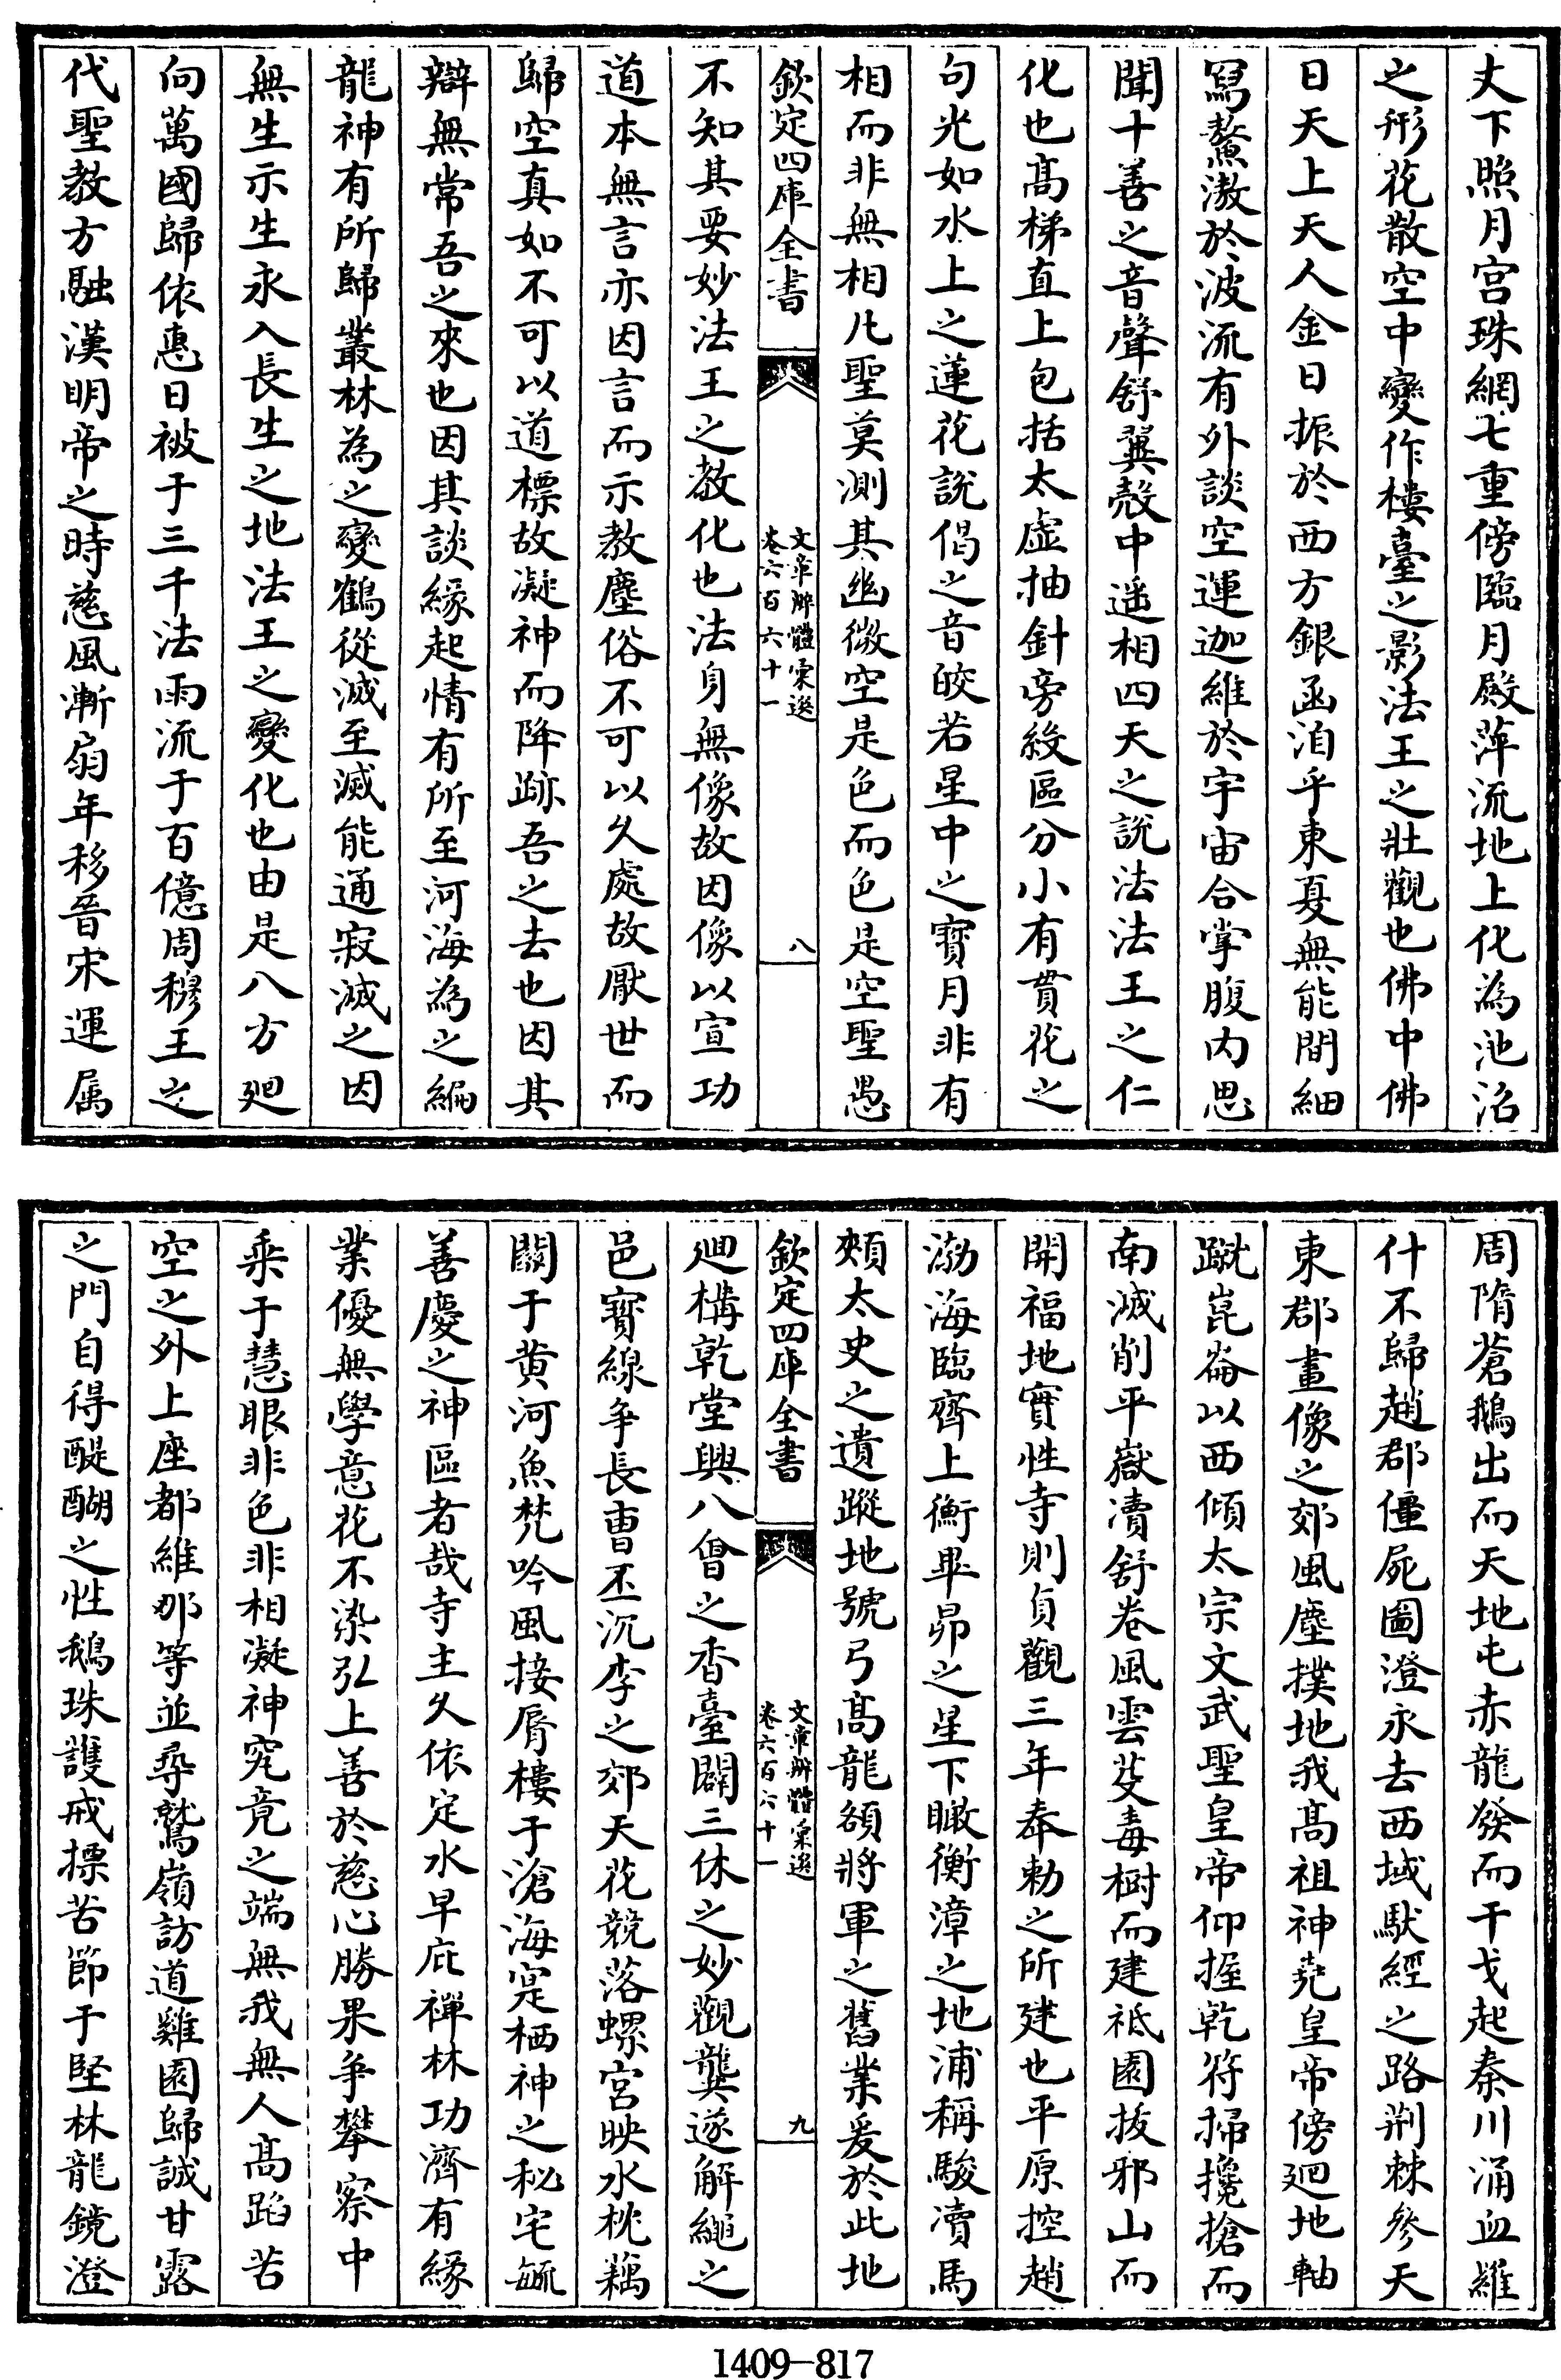 丈下照月宫珠網七重傍臨月殿萍流地上化為池沼
之形花散空中變作樓臺之影法王之壯觀也佛中佛
日天上天人金日振於西方銀函洎乎東夏無能間細
寫鰲潡於波流有外談空運迦維於宇宙合掌腹内思
聞十善之音聲舒翼殻中遥相四天之說法法王之仁
化也髙梯直上包括太虚抽針旁紋區分小有貫花之
句光如水上之蓮花說偈之音皎若星中之寳月非有
相而非無相凡聖莫測其幽微空是色而色是空聖愚
欽定四庫全書
文章辨體彚選
卷六百六十一
八
不知其要妙法王之教化也法身無像故因像以宣功
道本無言亦因言而示教塵俗不可以久處故厭世而
歸空真如不可以道標故凝神而降跡吾之去也因其
辯無常吾之來也因其談緣起情有所至河海為之綳
龍神有所歸叢林為之變鶴從滅至滅能通寂滅之因
無生示生永入長生之地法王之變化也由是八方廻
向萬國歸依惠日被于三千法雨流于百億周穆王之
代聖教方融漢明帝之時慈風漸扇年移晉宋運属
周隋蒼鵝出而天地屯赤龍發而干戈起秦川涌血羅
什不歸趙郡僵屍圖澄永去西域馱經之路荆棘參天
東郡畫像之郊風塵撲地我髙祖神堯皇帝傍廻地軸
蹴崑崙以西傾太宗文武聖皇帝仰握乾符掃攙搶而
南滅削平嶽凟舒卷風雲芟毒樹而建祗園拔邪山而
開福地實性寺則貞觀三年奉勅之所建也平原控趙
渤海臨齊上衝畢昴之星下瞰衡漳之地浦稱駿凟馬
頰太史之遺蹤地號弓髙龍頟將軍之舊業爰於此地
欽定四庫全書
文章辨體彚選
卷六百六十一
九
廻構乾堂興八㑹之香臺闢三休之妙觀龔遂解繩之
邑寳線爭長曹丕沉李之郊天花競落螺宮映水枕藕
闗于黄河魚梵吟風接脣樓于滄海寔栖神之秘宅毓
善慶之神區者哉寺主久依定水早庇禪林功濟有緣
業優無學意花不染弘上善於慈心勝果爭攀察中
乘于慧眼非色非相凝神究竟之端無我無人髙蹈苦
空之外上座都維那等並尋鷲嶺訪道雞園歸誠甘露
之門自得醍醐之性鵝珠護戒摽苦節于堅林龍鏡澄
1409—817